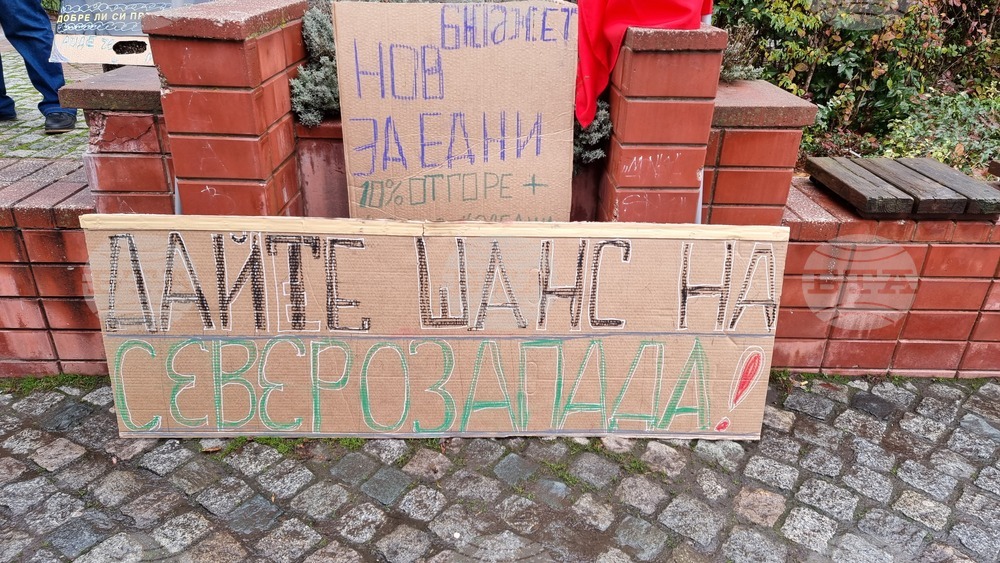 ДОБРЕ ЛИ СИ
БЮДЖЕТ
НОВ
ЗА ЕДНИ
10% ОТГОРЕ +
ДАЙТЕ ШАНС НА
СЕВЕРОЗАПАДА!
БТА